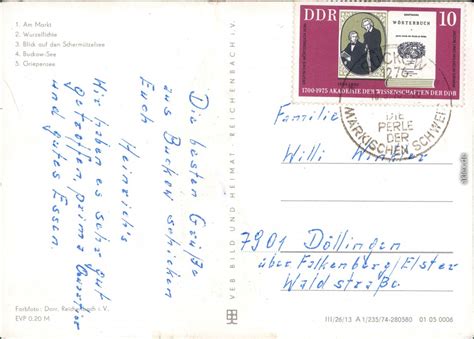 1. Am Markt
2. Wurzelfichte
3. Blick auf den Schermützelsee
4. Buckow-See
5. Griepensee
Die besten Grüße
aus Buckow schicken
Euch
Heinrich's
Wir haben es sehr gut
getroffen, prima Quartier
und gutes Essen
Farbfoto: Dmr. Reichenbach i. V.
EVP 0.20 M
VEB BILD UND HEIMAT REICHENBACH i. V.
DDR
10
WÖRTERBUCH
1700-1975 AKADEMIE DER WISSENSCHAFTEN DER DDR
1276
DIE
PERLE
DER
MÄRKISCHEN SCHWEIZ
Familie
Willi Winkler
7901 Döllingen
über Falkenberg/Elster
Waldstraße
III/26/13 A 1/235/74-280580 01 05 0008